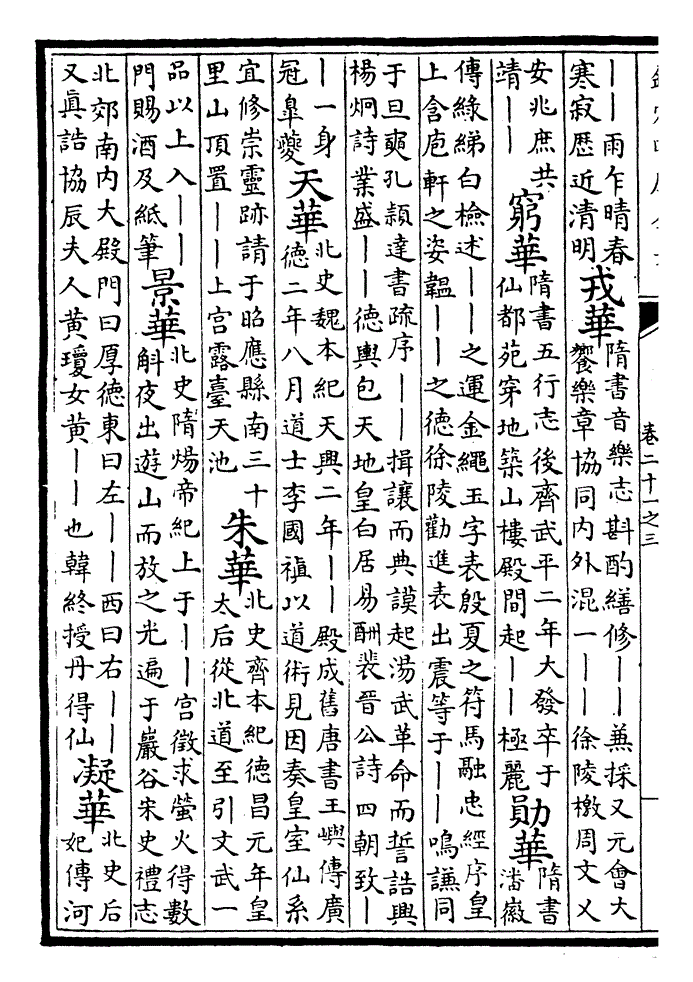 卷二十一之三
——雨乍晴春
寒寂歴近清明
戎華
隋書音樂志斟酌繕修——兼採又元會大
饗樂章協同内外混一——徐陵檄周文乂
安兆庶共
靖——
窮華
隋書五行志後齊武平二年大發卒于
仙都苑穿地築山樓殿間起——極麗
勛華
隋書
潘徽
傳綠綈白檢述——之運金繩玉字表殷夏之符馬融忠經序皇
上含庖軒之姿韞——之德徐陵勸進表出震等于——鳴謙同
于旦奭孔穎達書疏序——揖讓而典謨起湯武革命而誓誥興
楊炯詩業盛——德輿包天地皇白居易酬裴晉公詩四朝致—
—一身
冠臯夔
天華
北史魏本紀天興二年——殿成舊唐書王嶼傳廣
德二年八月道士李國禎以道術見因奏皇室仙系
宜修崇靈跡請于昭應縣南三十
里山頂置——上宫露臺天池
朱華
北史齊本紀德昌元年皇
太后從北道至引文武一
品以上入———
門賜酒及紙筆
景華
北史隋煬帝紀上于——宫徵求螢火得數
斛夜出遊山而放之光遍于巖谷宋史禮志
北郊南内大殿門曰厚德東曰左——西曰右——
又真誥協辰夫人黄瓊女黄——也韓終授丹得仙
凝華
北史后
妃傳河